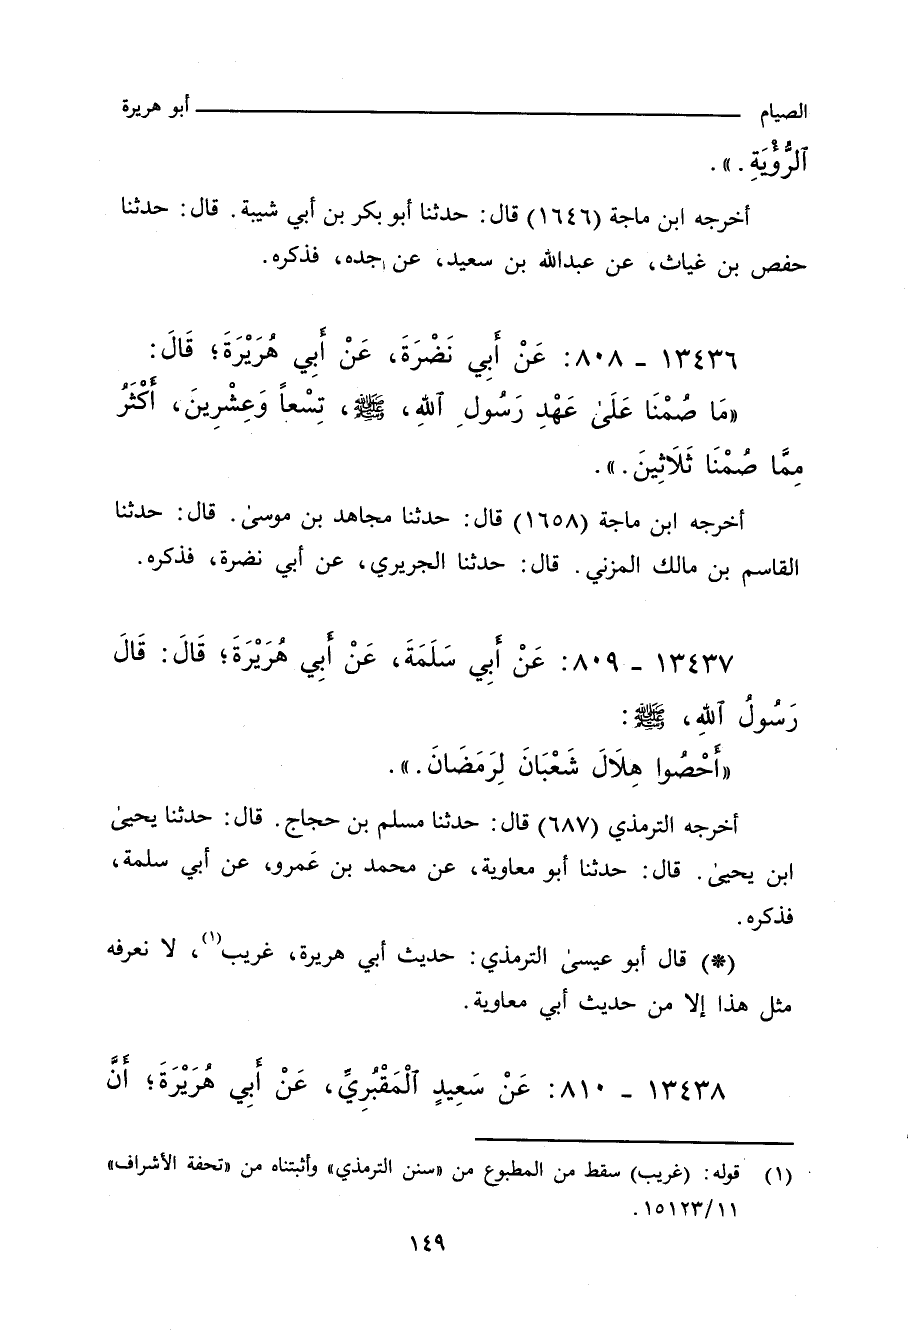 الصيام ـــــــ أبو هريرة
ٱلرُّؤْيَةِ . » .
أخرجه ابن ماجة (١٦٤٦) قال : حدثنا أبو بكر بن أبي شيبة . قال : حدثنا
حفص بن غياث، عن عبدالله بن سعيد، عن جده، فذكره .
١٣٤٣٦ ـ ٨٠٨ : عَنْ أَبِي نَضْرَةَ، عَنْ أَبِي هُرَيْرَةَ؛ قَالَ :
«مَا صُمْنَا عَلَىٰ عَهْدِ رَسُولِ ٱللهِ، ﷺ، تِسْعاً وَعِشْرِينَ، أَكْثَرُ
مِمَّا صُمْنَا ثَلَاثِينَ . » .
أخرجه ابن ماجة (١٦٥٨) قال : حدثنا مجاهد بن موسىٰ . قال : حدثنا
القاسم بن مالك المزني . قال : حدثنا الجريري، عن أبي نضرة، فذكره .
١٣٤٣٧ ـ ٨٠٩ : عَنْ أَبِي سَلَمَةَ، عَنْ أَبِي هُرَيْرَةَ؛ قَالَ : قَالَ
رَسُولُ ٱللهِ، ﷺ :
«أَحْصُوا هِلَالَ شَعْبَانَ لِرَمَضَانَ . » .
أخرجه الترمذي (٦٨٧) قال : حدثنا مسلم بن حجاج . قال : حدثنا يحيىٰ
ابن يحيىٰ . قال : حدثنا أبو معاوية، عن محمد بن عَمرو، عن أبي سلمة،
فذكره .
(*) قال أبو عيسىٰ الترمذي : حديث أبي هريرة، غريب(١)، لا نعرفه
مثل هذا إلا من حديث أبي معاوية .
١٣٤٣٨ ـ ٨١٠ : عَنْ سَعِيدٍ ٱلْمَقْبُرِيِّ، عَنْ أَبِي هُرَيْرَةَ؛ أَنَّ
(١) قوله : (غريب) سقط من المطبوع من «سنن الترمذي» وأثبتناه من «تحفة الأشراف»
١٥١٢٣/١١ .
١٤٩